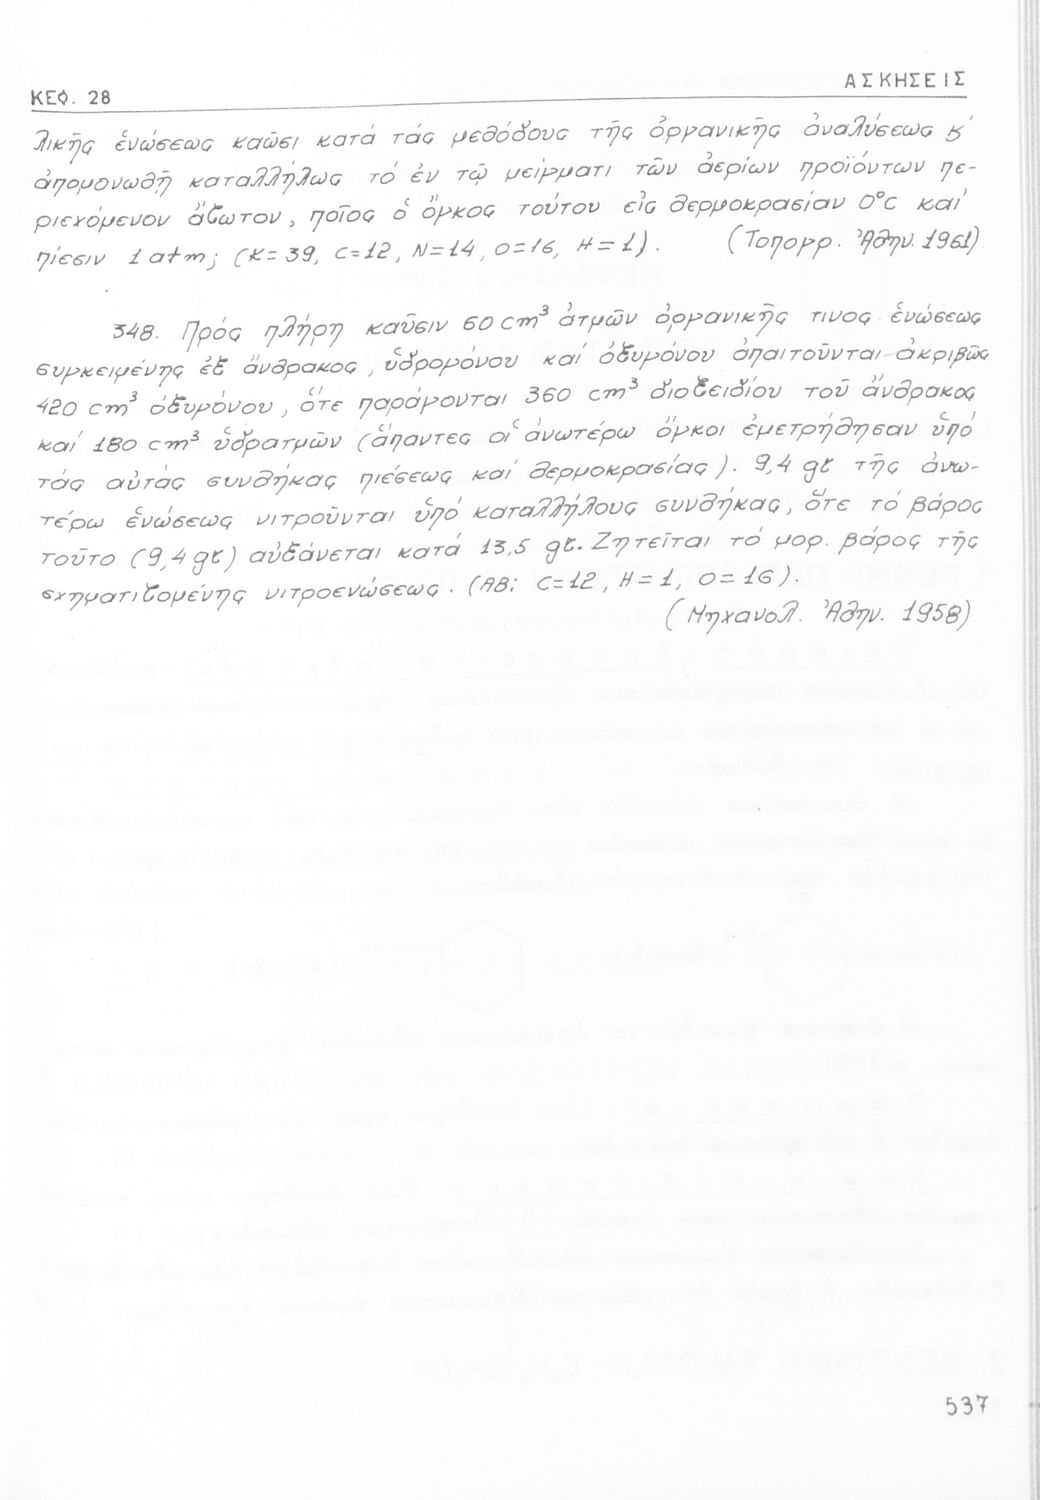 ΚΕΦ. 28
ΑΣΚΗΣΕΙΣ
λικῆς ἑνώσεως καῶσι κατά τάς μεθόδους τῆς ὀργανικῆς ἀναλύσεως κ'
ἀπομονωθῇ καταλλήλως τό ἐν τῷ μείγματι τῶν ἀερίων προϊόντων πε-
ριεχόμενον ἄζωτον, ποῖος ὁ ὄγκος τούτου εἰς θερμοκρασίαν 0°C καί
πίεσιν 1 atm; (K=39, C=12, N=14, O=16, H=1). (Τοπογρ. Ἀθην. 1961)
348. Πρός πλήρη καῦσιν 60 cm³ ἀτμῶν ὀργανικῆς τινος ἑνώσεως
συγκειμένης ἐξ ἄνθρακος, ὑδρογόνου καί ὀξυγόνου ἀπαιτοῦνται ἀκριβῶς
420 cm³ ὀξυγόνου, ὅτε παράγονται 360 cm³ διοξειδίου τοῦ ἄνθρακος
καί 180 cm³ ὑδρατμῶν (ἅπαντες οἱ ἀνωτέρω ὄγκοι ἐμετρήθησαν ὑπό
τάς αὐτάς συνθήκας πιέσεως καί θερμοκρασίας). 9,4 gr τῆς ἀνω-
τέρω ἑνώσεως νιτροῦνται ὑπό καταλλήλους συνθήκας, ὅτε τό βάρος
τοῦτο (9,4 gr) αὐξάνεται κατά 13,5 gr. Ζητεῖται τό μορ. βάρος τῆς
σχηματιζομένης νιτροενώσεως. (ΑΒ: C=12, H=1, O=16).
(Μηχανολ. Ἀθην. 1958)
537